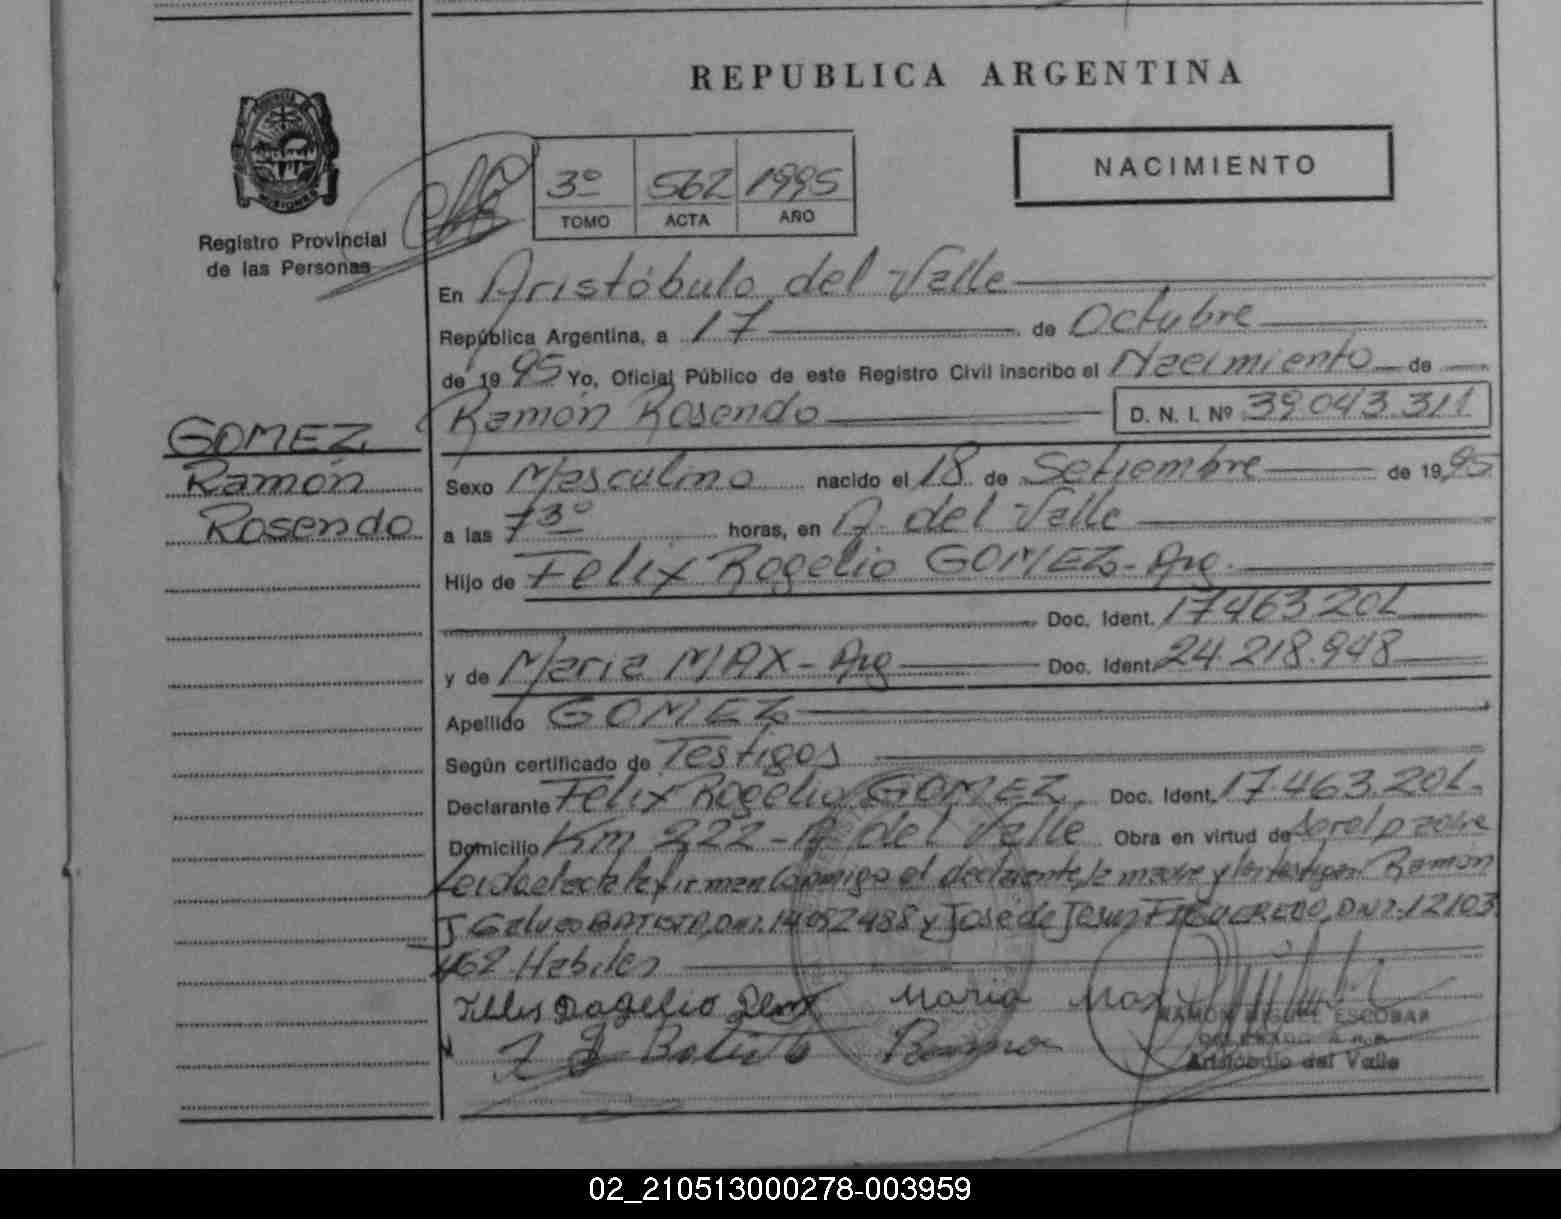 REPUBLICA ARGENTINA
NACIMIENTO
3º 562 1995
TOMO ACTA AÑO
MISIONES
Registro Provincial
de las Personas
En Aristóbulo del Valle
República Argentina, a 17 de Octubre
de 1995 Yo, Oficial Público de este Registro Civil inscribo el Nacimiento de
Ramón Rosendo D. N. I. Nº 39.043.311
GOMEZ
Ramón
Rosendo
Sexo Masculino nacido el 18 de Setiembre de 1995
a las 7 3º horas, en A. del Valle
Hijo de Felix Rogelio GOMEZ - Arg.
Doc. Ident. 17.463.20
y de Maria MAX - Arg Doc. Ident. 24.218.948
Apellido GOMEZ
Según certificado de Testigos
Declarante Felix Rogelio GOMEZ Doc. Ident. 17.463.20
Domicilio Km 222 - A. del Valle Obra en virtud de ser el padre
Leida el acta la firman conmigo el declarante, la madre y los testigos: Ramón
J. BATISTA, DNI. 14092488 y José de Jesus FIGUEREDO, DNI. 12103
462 Habiles
Rogelio Maria Max
RAMON MIGUEL ESCOBAR
DELEGADO
Aristóbulo del Valle
02_210513000278-003959